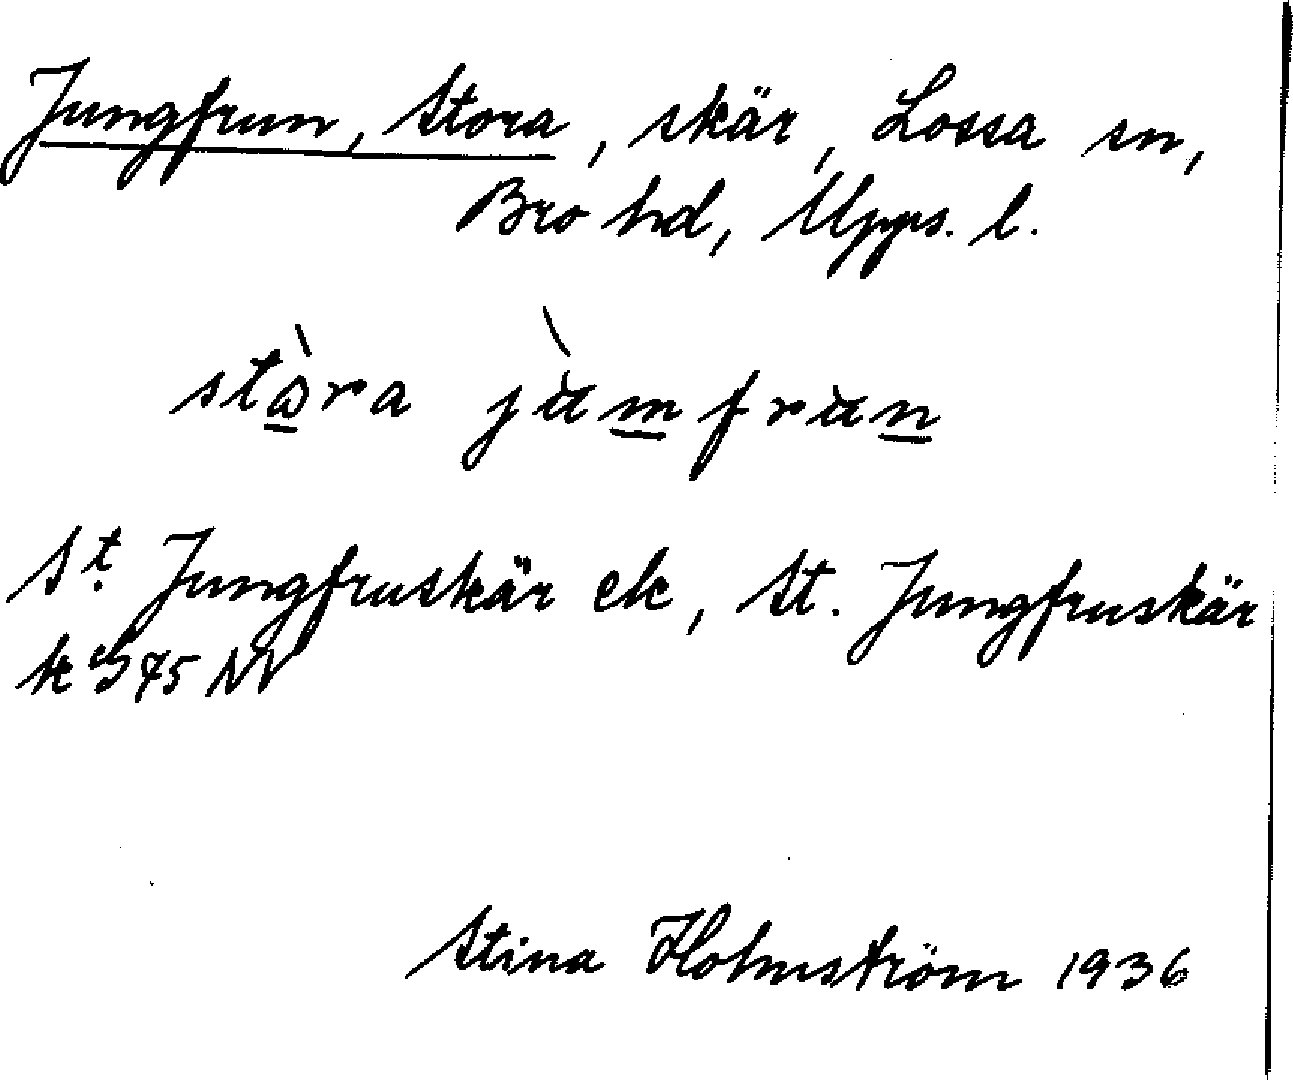 Jungfrun, Stora, skär, Lossa sn,
Bro hd, Upps. l.
stὼra jùmfrùn
St. Jungfruskär ek, St. Jungfruskär
k 75 NV
Stina Holmström 1936